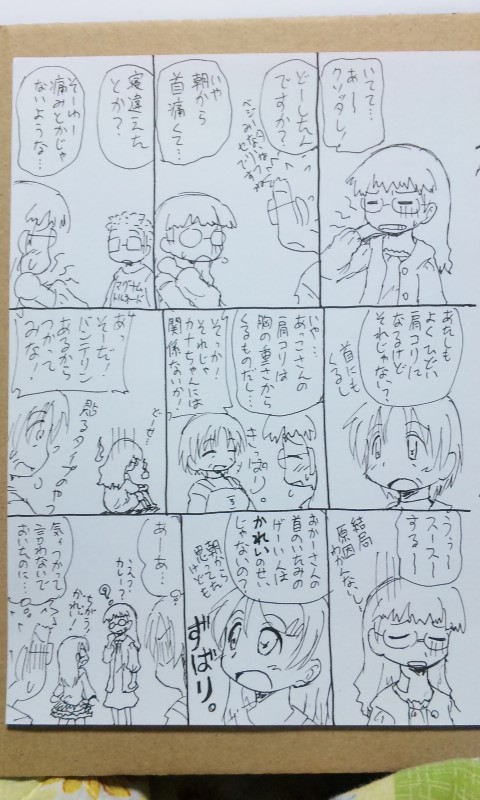 いてて…
あ〜〜
クソッタレ!
どーしたん
ですか?
いや
朝から
首痛くて…
寝違えた
とか?
そーゆー
痛みとかじゃ
ないような…
マグナム
トルネード
あたしも
よくひどい
肩コリに
なるけど
それじゃない?
首にも
くるし
いや…
あっこさんの
肩コリは
胸の重さから
くるものだし…
きっぱり。
そっか!
それじゃ
カナちゃんには
関係ないか!
あっ
そーだ!
バンテリン
あるから
つかって
みな!
貼るタイプのやつ
どーせ…
うぅ〜
スースー
する〜
結局
原因
わかんないし…
おかーさんの
首のいたみの
げーいんは
かれいのせい
じゃないの?
朝から
思ってた
けども
ずばり。
あーあ…
気ぃつかって
言わないで
おいたのに…
えっ?
カレー?
ちがう!
かれい!